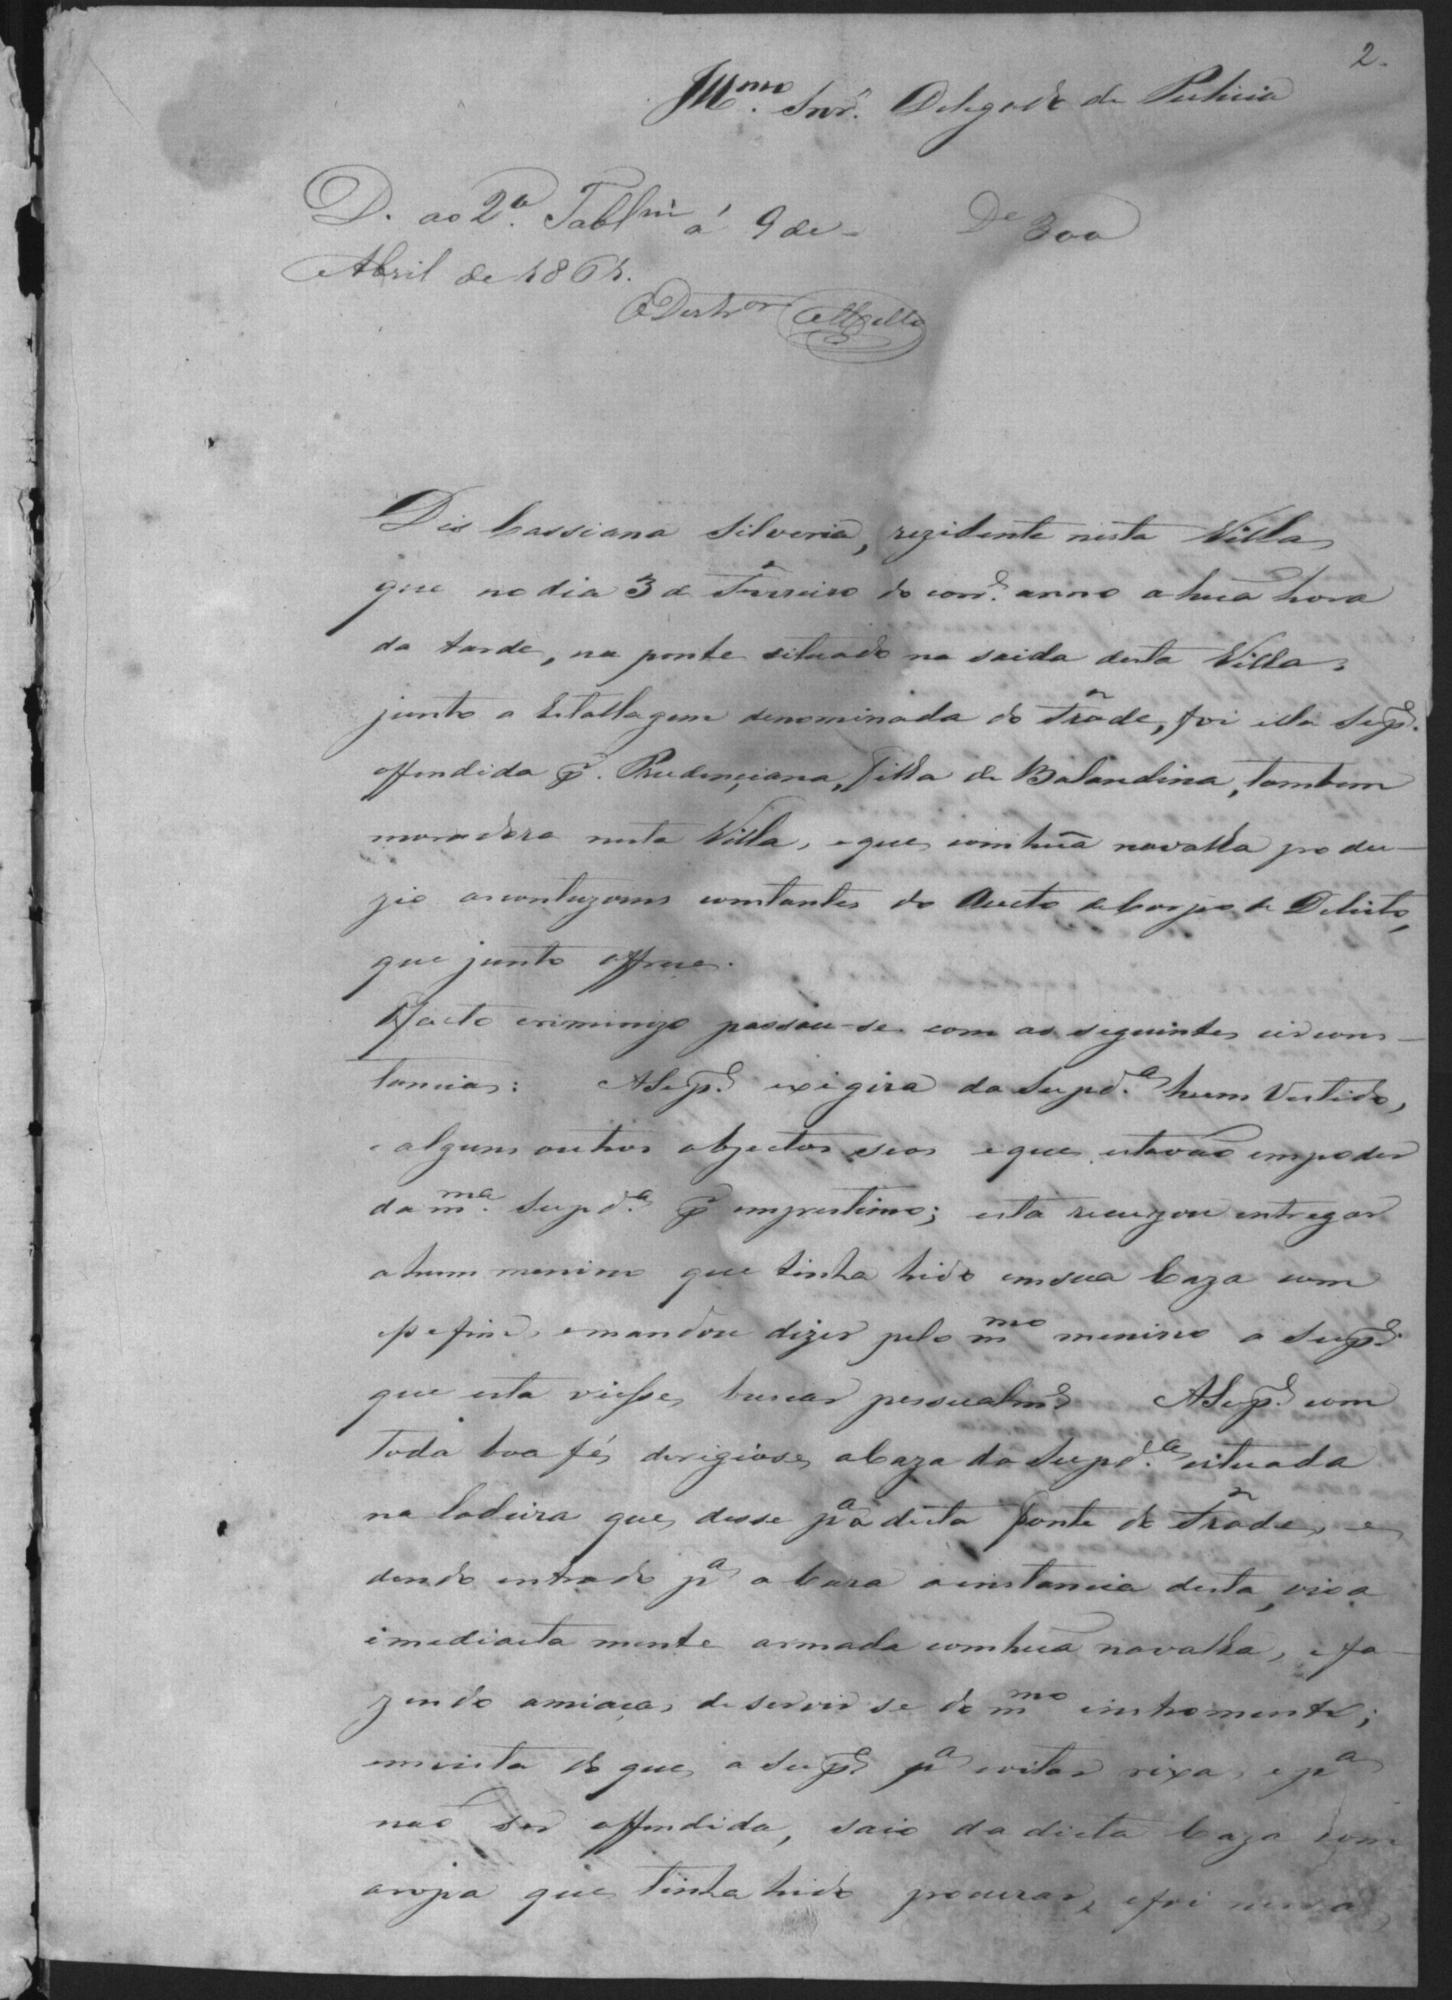 2.
Illmo. Snr. Delegado de Policia
D. ao 2º. Tablm á 9 de De 300
Abril de 1864.
O Destror Mello
Dis Cassiana Silveria, rezidente nesta Villa,
que no dia 3 de Fevereiro do corre. anno a huã hora
da tarde, na ponte situado na saida desta Villa,
junto a Estallagem denominada do Trãde, foi ella Supe.
offendida pr. Prudenciana, filha de Balandina, tambem
moradora nesta Villa, e que com huã navalha produ-
zio as contuzoens constantes do Aucto de Corpo de Delicto,
que junto offrece.
O facto criminozo passou-se com as seguintes circons-
tancias: A Supe. exigira da Supda. hum Vestido,
e alguns outros objectos seos e que estavaõ em poder
da mma. Supda. pr emprestimo; esta recuzou entregar
a hum menino que tinha hido em sua Caza com
esse fim, e mandou dizer pelo mmo menino a Supe.
que esta viesse buscar pessoalme. A Supe. com
toda boa fé, derigiose a Caza da Supda. situada
na ladeira que desse pa a dicta ponte do Trãde, e
dendo entrado pa a Casa a instancia desta, vio a
imediacta mente armada com huã navalha, e fa-
zendo amiaça, de servir se do mmo instromento;
em vista do que a Supe. pa evitar rixa, e pa
naõ ser offendida, saio da dicta Caza com
a ropa que tinha hido procurar, e foi